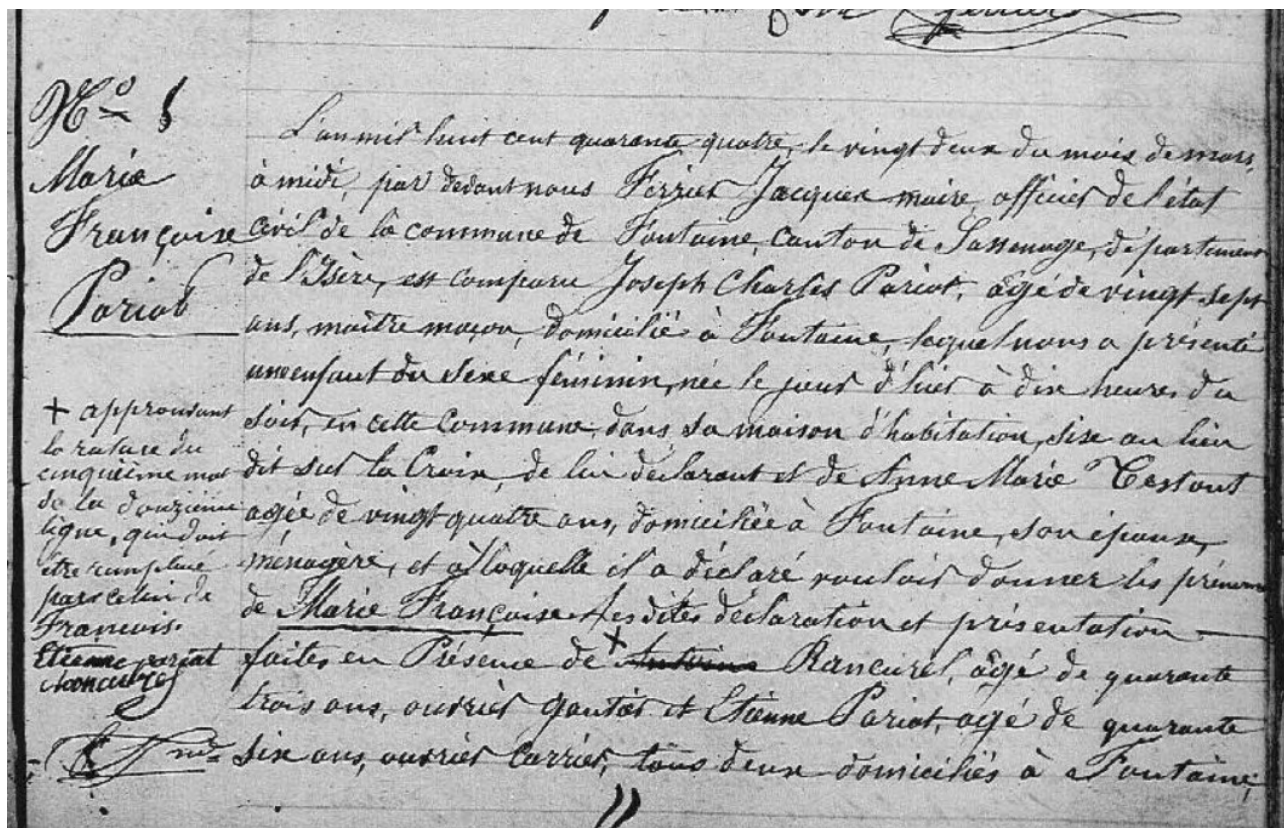 Nº 8
Marie
Françoise
Pariat
+ approuvant
la rature du
cinquième mot
de la douzième
ligne, qui doit
être remplacé
par celui de
François.
Etienne pariat
L'an mil huit cent quarante quatre, le vingt deux du mois de mars,
à midi, par devant nous Ferrier Jacques maire, officier de l'état
civil de la commune de Fontaine, canton de Sassenage, département
de l'Isère, est comparu Joseph Charles Pariat, âgé de vingt sept
ans, maître maçon, domicilié à Fontaine, lequel nous a présenté
un enfant du sexe féminin, née le jour d'hier à dix heures du
soir, en cette Commune, dans sa maison d'habitation, sise au lieu
dit sur la Croix, de lui déclarant et de Anne Marie Testout
agée de vingt quatre ans, domiciliée à Fontaine, son épouse,
ménagère, et à laquelle il a déclaré vouloir donner les prénoms
de Marie Françoise. Lesdites déclaration et présentation
faites en Présence de + Antoine Rancurel, âgé de quarante
trois ans, ouvrier gantier et Etienne Pariat, agé de quarante
six ans, ouvrier carrier, tous deux domiciliés à Fontaine,